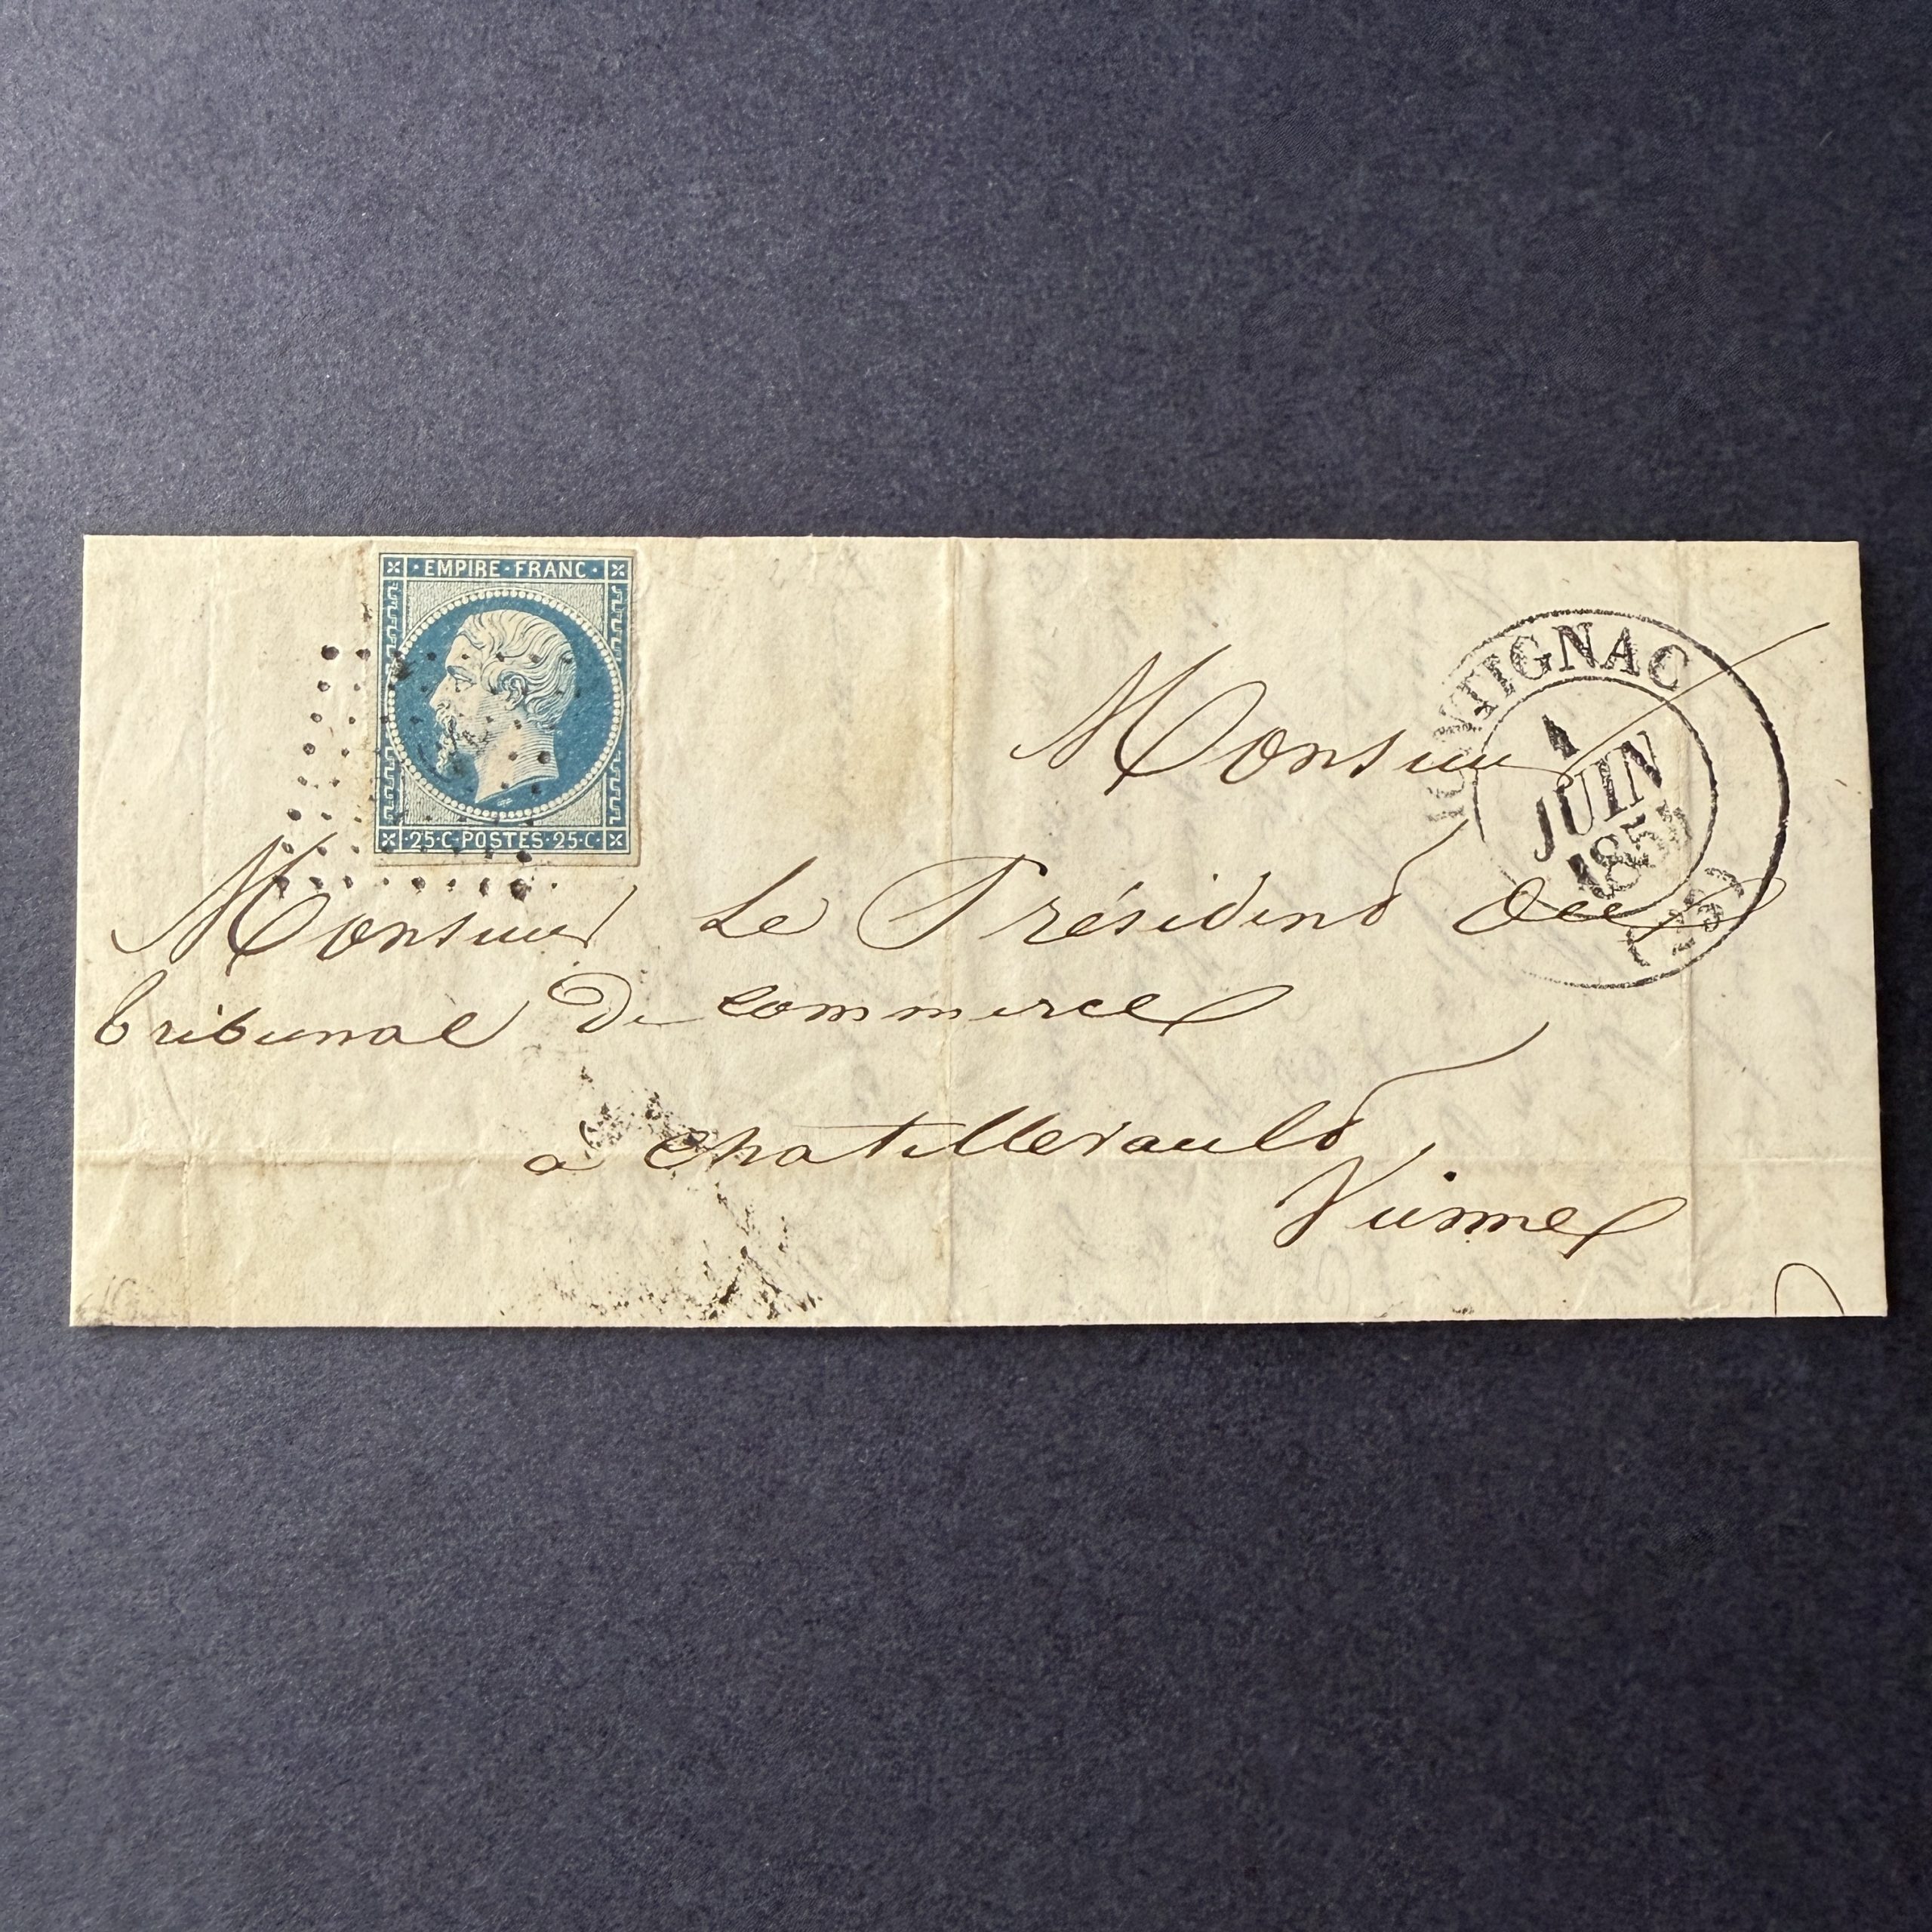 · EMPIRE · FRANC ·
· 25 · C · POSTES · 25 · C ·
MONTIGNAC
1
JUIN
1853
Monsieur
Monsieur Le Président du
tribunal De commerce
a chatellerauld
Vienne